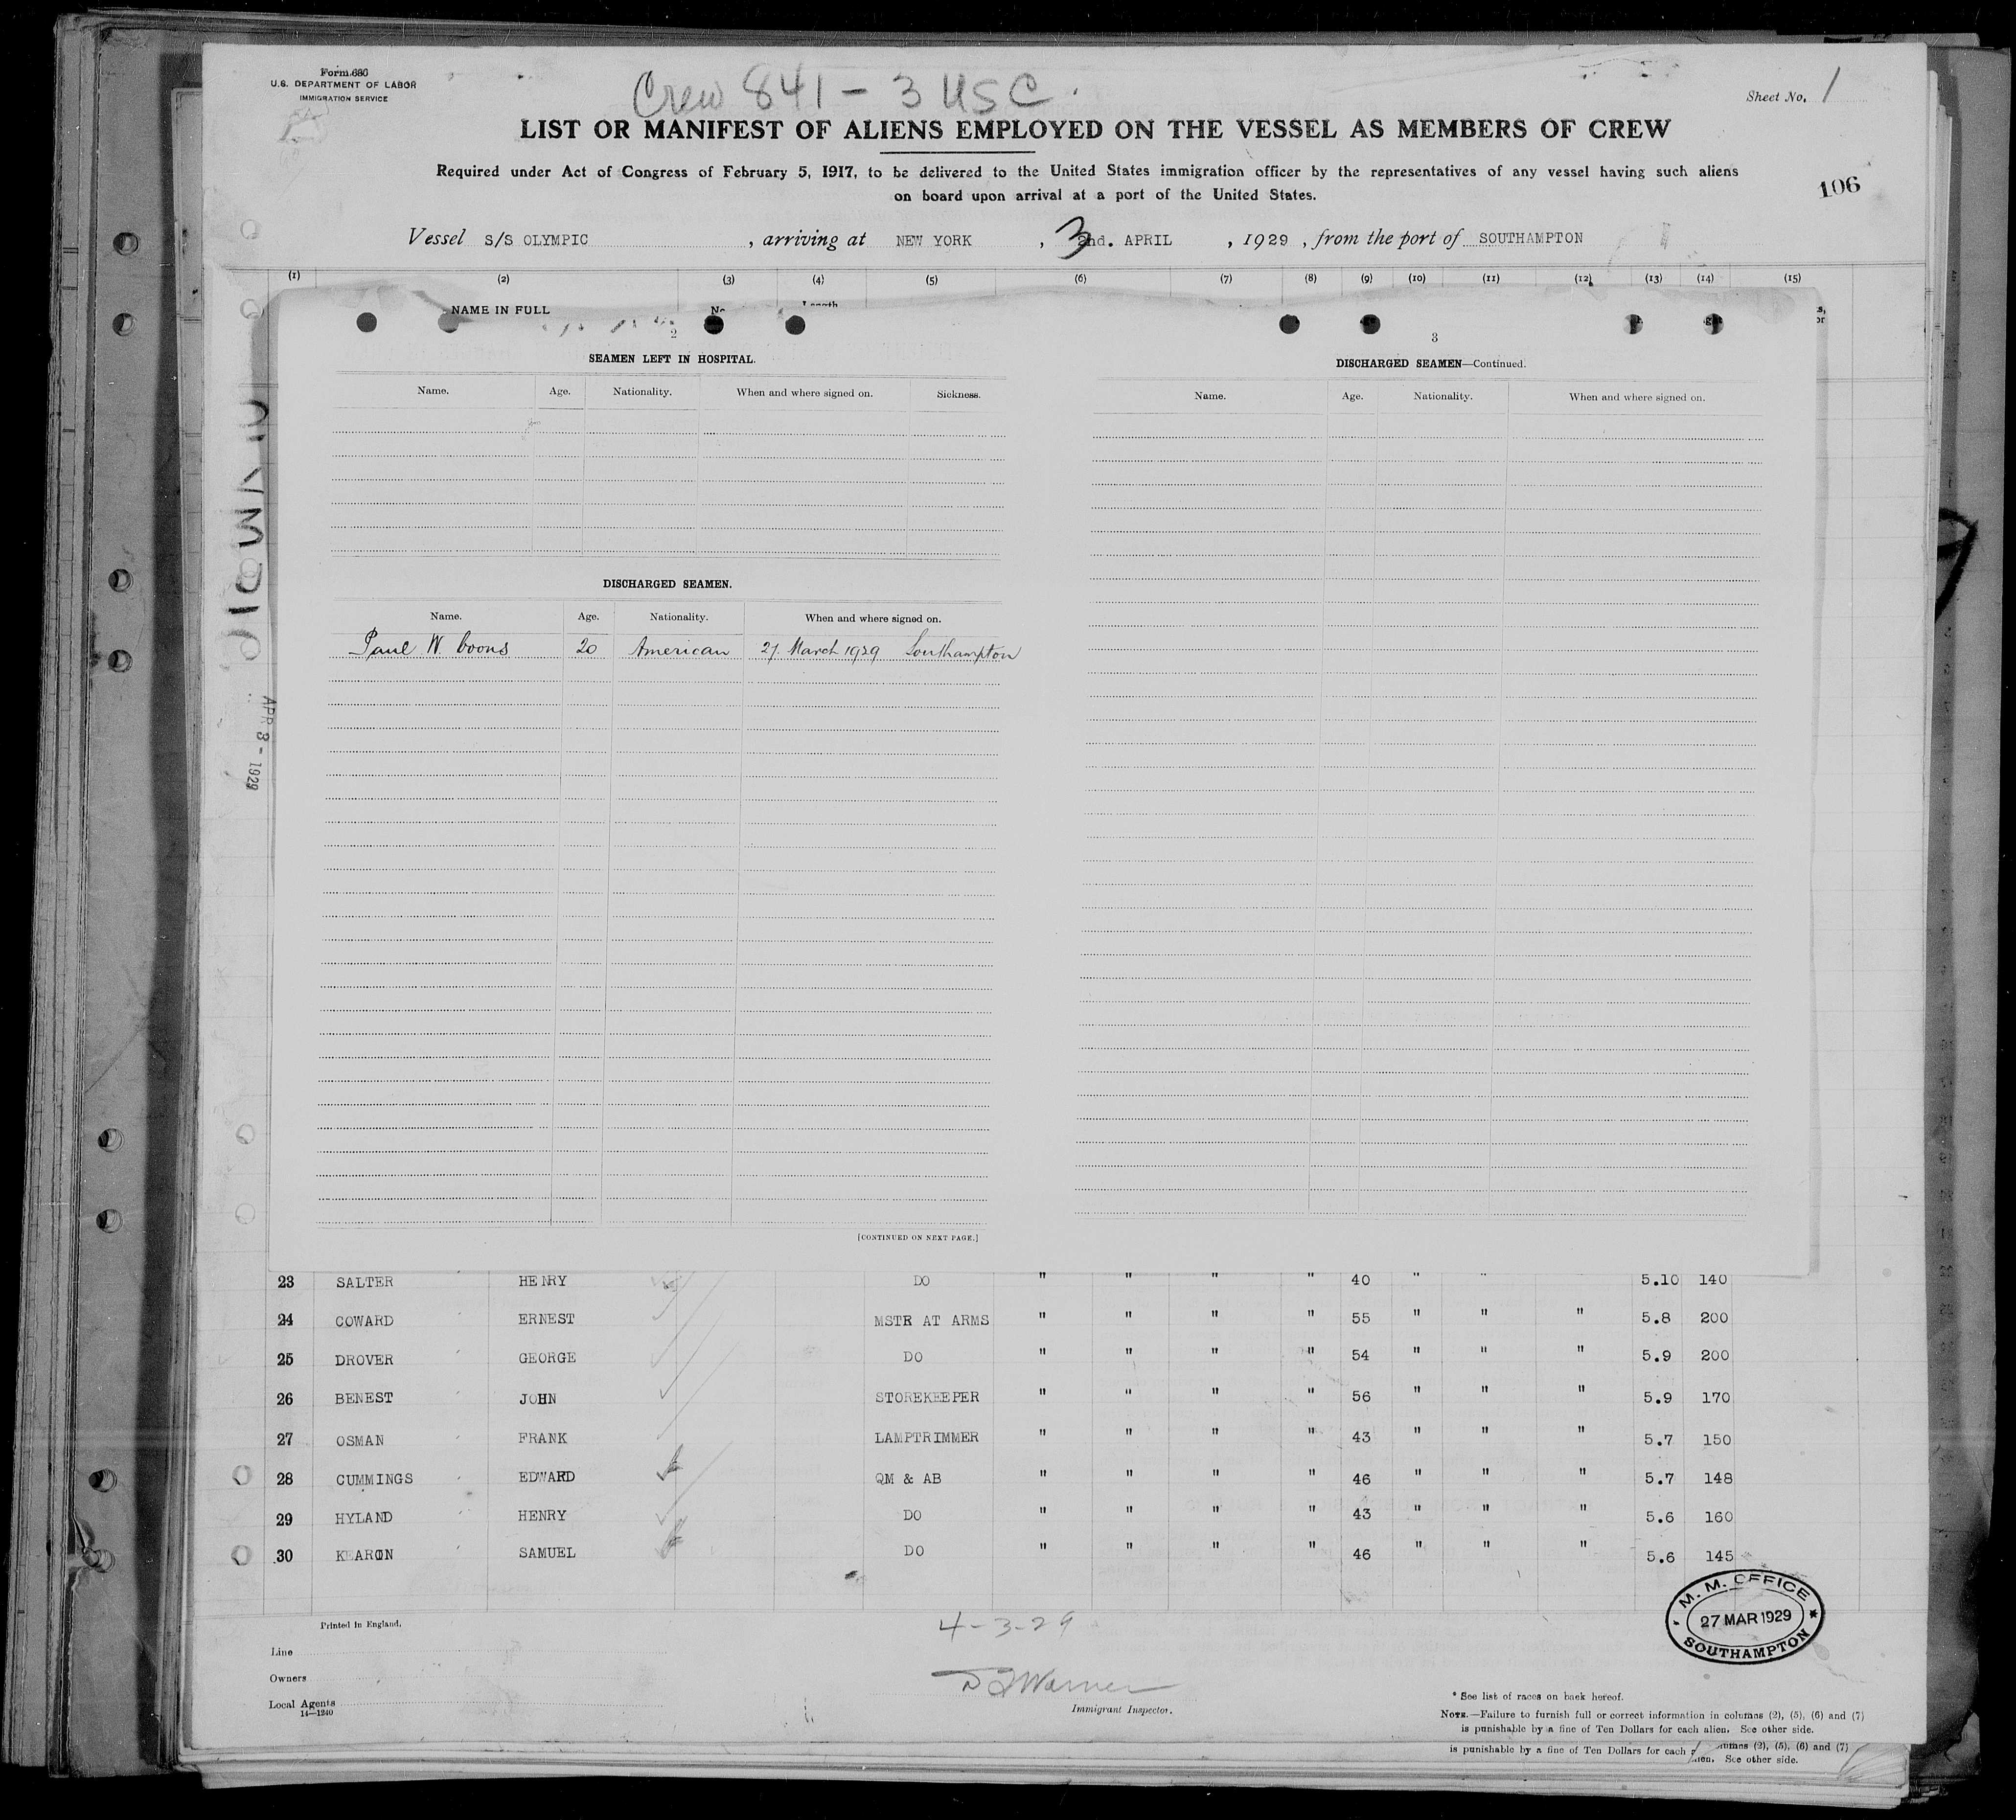 Form 680
U.S. DEPARTMENT OF LABOR
IMMIGRATION SERVICE
Crew 841 - 3 USC.
Sheet No. 1
LIST OR MANIFEST OF ALIENS EMPLOYED ON THE VESSEL AS MEMBERS OF CREW
Required under Act of Congress of February 5, 1917, to be delivered to the United States immigration officer by the representatives of any vessel having such aliens
on board upon arrival at a port of the United States.
106
Vessel S/S OLYMPIC, arriving at NEW YORK, 3 nd. APRIL, 1929, from the port of SOUTHAMPTON
(1) (2) (3) (4) (5) (6) (7) (8) (9) (10) (11) (12) (13) (14) (15)
NAME IN FULL
Length
2
3
SEAMEN LEFT IN HOSPITAL.
Name. Age. Nationality. When and where signed on. Sickness.
DISCHARGED SEAMEN.
Name. Age. Nationality. When and where signed on.
Paul W. Coons 20 American 27. March 1929 Southampton
[CONTINUED ON NEXT PAGE.]
DISCHARGED SEAMEN—Continued.
Name. Age. Nationality. When and where signed on.
APR 3 - 1929
23 SALTER HENRY DO " " " " 40 " " 5.10 140
24 COWARD ERNEST MSTR AT ARMS " " " " 55 " " " 5.8 200
25 DROVER GEORGE DO " " " " 54 " " " 5.9 200
26 BENEST JOHN STOREKEEPER " " " " 56 " " " 5.9 170
27 OSMAN FRANK LAMPTRIMMER " " " " 43 " " " 5.7 150
28 CUMMINGS EDWARD QM & AB " " " " 46 " " " 5.7 148
29 HYLAND HENRY DO " " " " 43 " " " 5.6 160
30 KEARON SAMUEL DO " " " " 46 " " " 5.6 145
M. M. OFFICE
27 MAR 1929
SOUTHAMPTON
Printed in England.
Line
Owners
Local Agents
14—1240
4-3-29
Warner
Immigrant Inspector.
* See list of races on back hereof.
NOTE.—Failure to furnish full or correct information in columns (2), (5), (6) and (7)
is punishable by a fine of Ten Dollars for each alien. See other side.
is punishable by a fine of Ten Dollars for each
(2), (5), (6) and (7)
See other side.